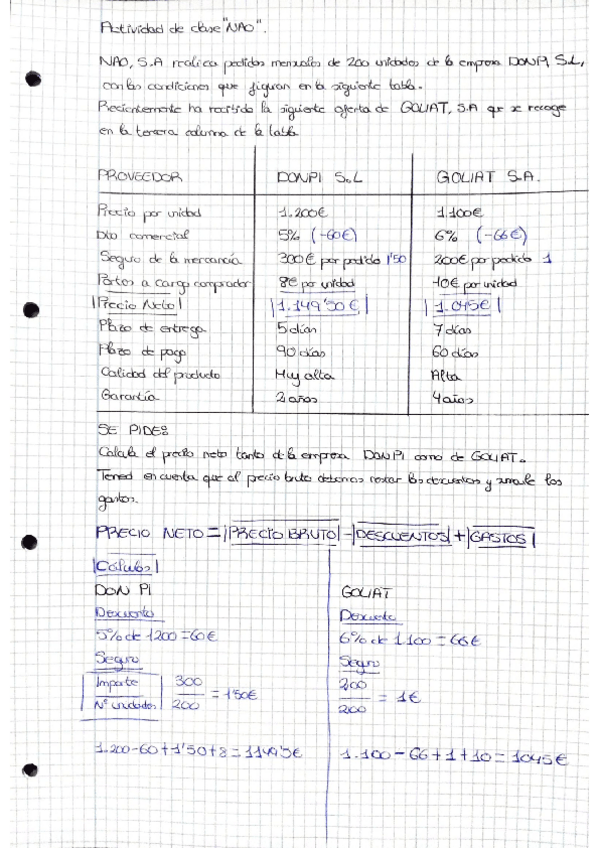 Actividad de clase "NAO".
NAO, S.A realiza pedidos mensuales de 200 unidades de la empresa DONPI, S.L,
con las condiciones que figuran en la siguiente tabla.
Recientemente ha recibido la siguiente oferta de GOLIAT, S.A que se recoge
en la tercera columna de la tabla
PROVEEDOR DONPI S.L GOLIAT S.A.
Precio por unidad 1.200€ 1.100€
Dto comercial 5% (-60€) 6% (-66€)
Seguro de la mercancía 300€ por pedido 1'50 200€ por pedido 1
Portes a cargo comprador 8€ por unidad 10€ por unidad
|Precio Neto| |1.149'50€| |1.045€|
Plazo de entrega 5 días 7 días
Plazo de pago 90 días 60 días
Calidad del producto Muy alta Alta
Garantía 2 años 4 años
SE PIDE:
Calcula el precio neto tanto de la empresa DONPI como de GOLIAT.
Tened en cuenta que al precio bruto debemos restar los descuentos y sumarle los
gastos.
PRECIO NETO = |PRECIO BRUTO| - |DESCUENTOS| + |GASTOS|
|Cálculos|
DON PI
Descuento
5% de 1200 = 60€
Seguro
Importe / Nº unidades 300/200 = 1'50€
1.200-60+1'50+8 = 1149'5€
GOLIAT
Descuento
6% de 1100 = 66€
Seguro
200/200 = 1€
1.100-66+1+10 = 1045€